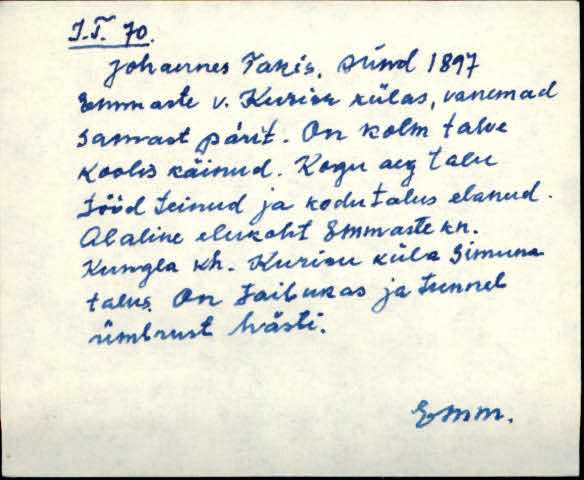 J.T. 70.
Johannes Takis, sünd 1897
Emmaste v. Kurisu külas, vanemad
samast pärit. On kolm talve
koolis käinud. Kogu aeg talu
tööd teinud ja kodutalus elanud.
Alaline elukoht Emmaste kn.
Kungla kh. Kurisu küla Simuna
talus. On taibukas ja tunneb
ümbrust hästi.
Emm.